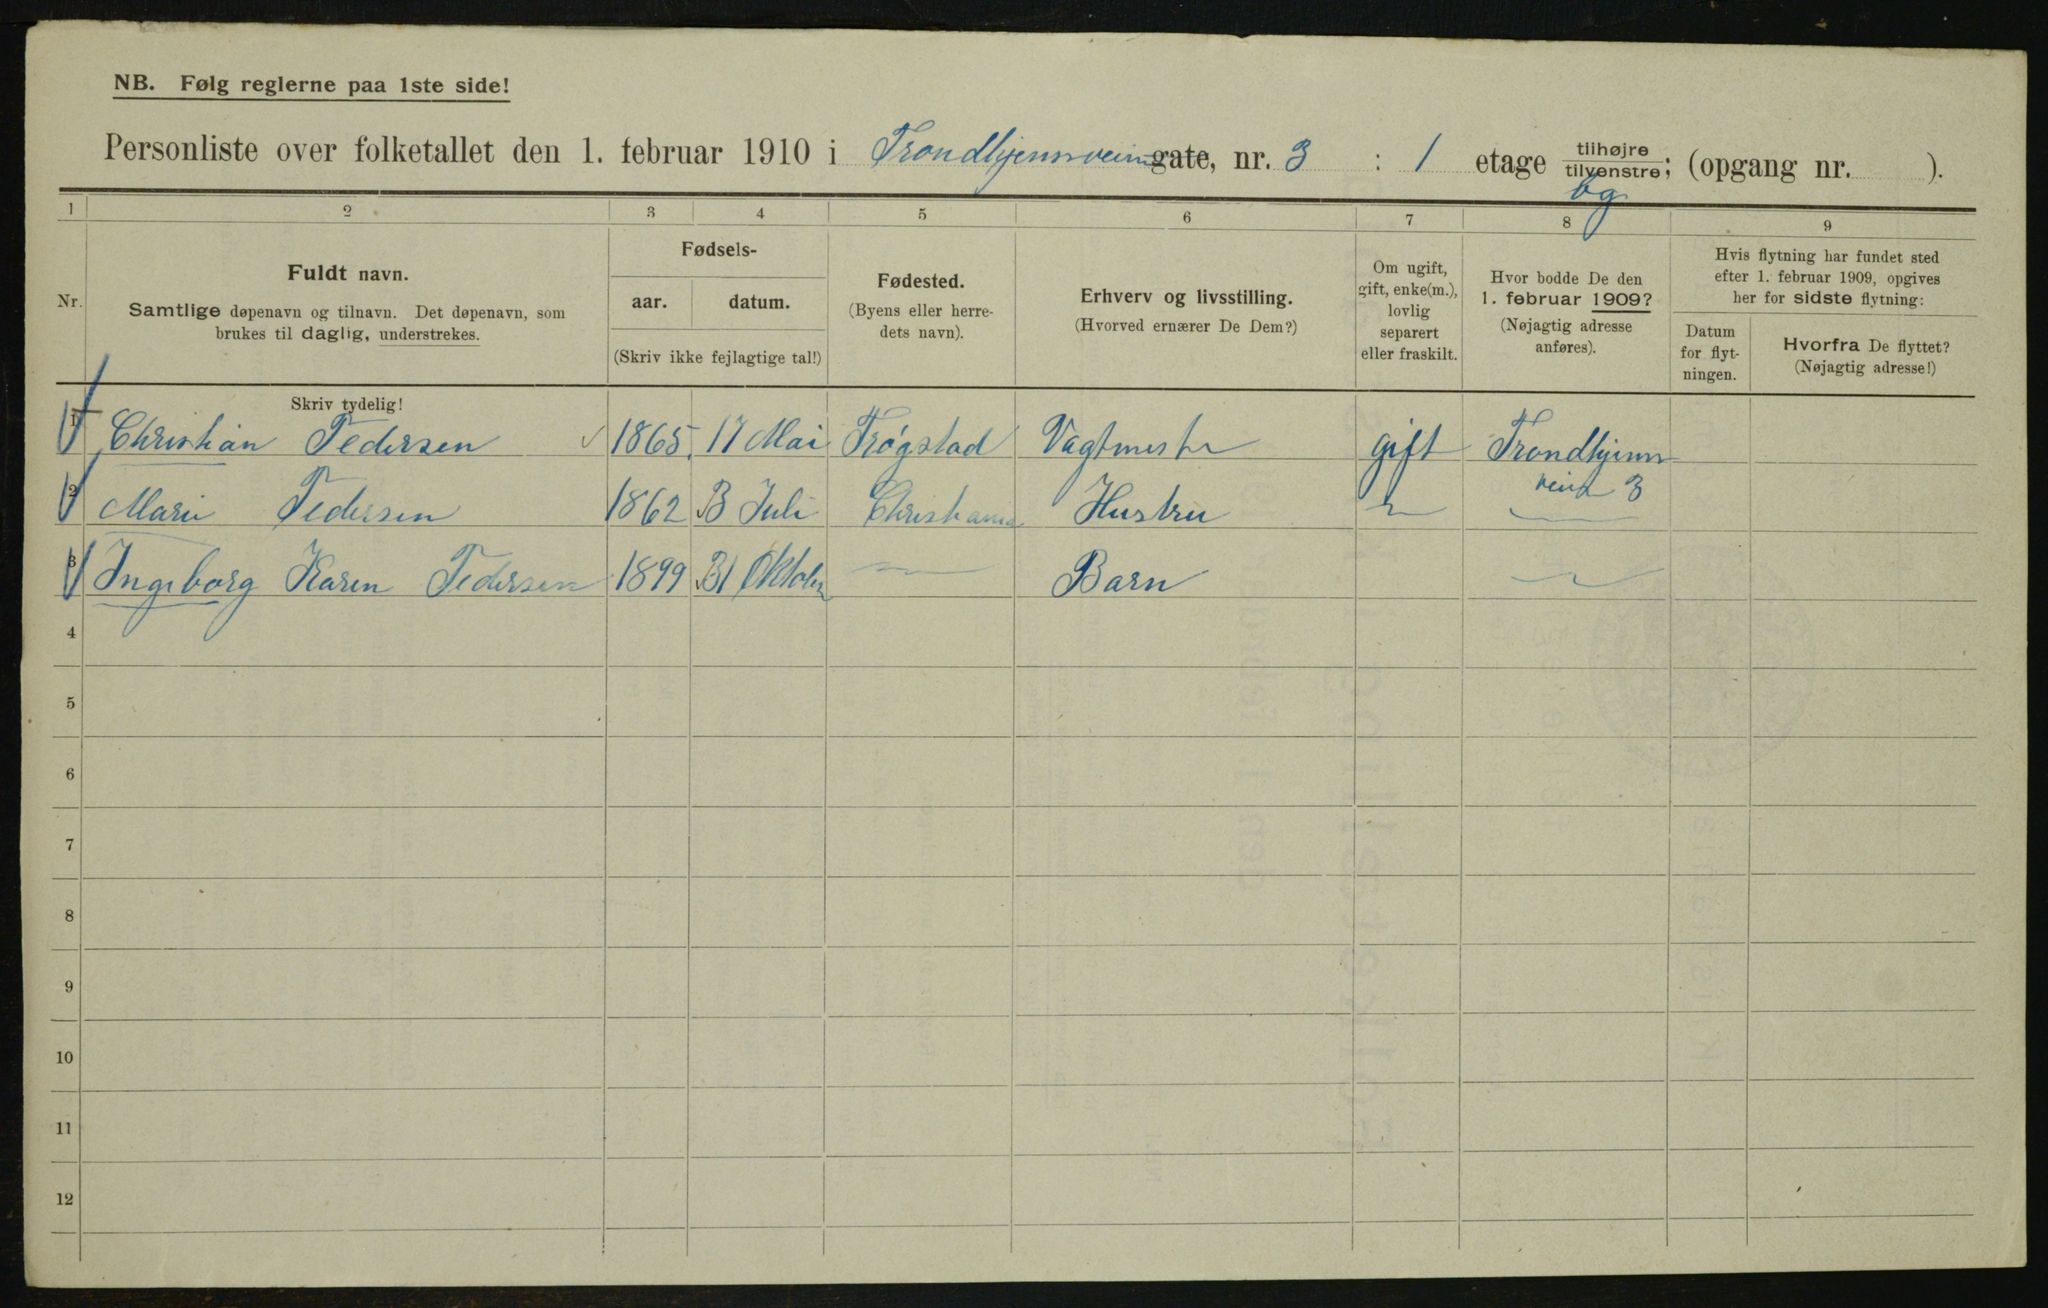 NB. Følg reglerne paa 1ste side!
Personliste over folketallet den 1. februar 1910 i Trondhjemsveien gate, nr. 3 : 1 etage tilhøjre tilvenstre; (opgang nr. ).
bg
1 2 3 4 5 6 7 8 9
Nr.
Fuldt navn.
Samtlige døpenavn og tilnavn. Det døpenavn, som
brukes til daglig, understrekes.
Fødsels-
aar. datum.
(Skriv ikke fejlagtige tal!)
Fødested.
(Byens eller herre-
dets navn).
Erhverv og livsstilling.
(Hvorved ernærer De Dem?)
Om ugift,
gift, enke(m.),
lovlig
separert
eller fraskilt.
Hvor bodde De den
1. februar 1909?
(Nøjagtig adresse
anføres).
Hvis flytning har fundet sted
efter 1. februar 1909, opgives
her for sidste flytning:
Datum
for flyt-
ningen.
Hvorfra De flyttet?
(Nøjagtig adresse!)
Skriv tydelig!
1 Christian Pedersen 1865. 17 Mai Trøgstad Vagtmester gift Trondhjems
veien 3
2 Marie Pedersen 1862 3 Juli Christiania Hustru
3 Ingeborg Karen Pedersen 1899 31 Oktober Barn
4
5
6
7
8
9
10
11
12